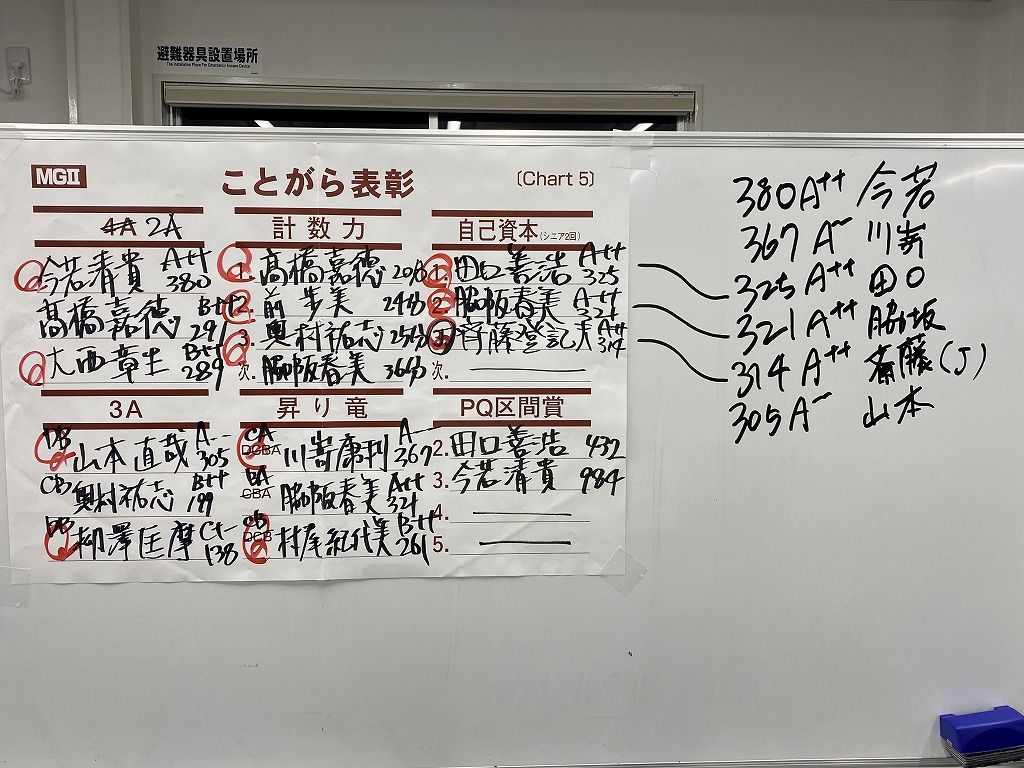 避難器具設置場所
The Installation Place For Emergency Escape Device
MGII
ことがら表彰
〔Chart 5〕
4A 2A
今若清貴 A++ 380
髙橋嘉德 B++ 291
大西章生 B++ 289
計数力
1. 髙橋嘉德 20分
2. 前 歩美 24分
3. 奥村祐志 25分
次. 脇阪春美 36分
自己資本(シニア2回)
1. 田口善浩 A++ 325
2. 脇阪春美 A++ 321
齊藤登記夫 A++ 314
次.
3A
DB 山本直哉 A-- 305
CB 奥村祐志 B++ 199
DB 柳澤匡摩 C+- 138
昇り竜
CA DCBA 川嵜康刊 A-- 367
BA CBA 脇阪春美 A++ 321
CB DCB 村尾紀代美 B++ 261
PQ区間賞
2. 田口善浩 432
3. 今若清貴 984
4.
5.
380 A++ 今若
367 A-- 川嵜
325 A++ 田口
321 A++ 脇坂
314 A++ 斎藤(J)
305 A-- 山本